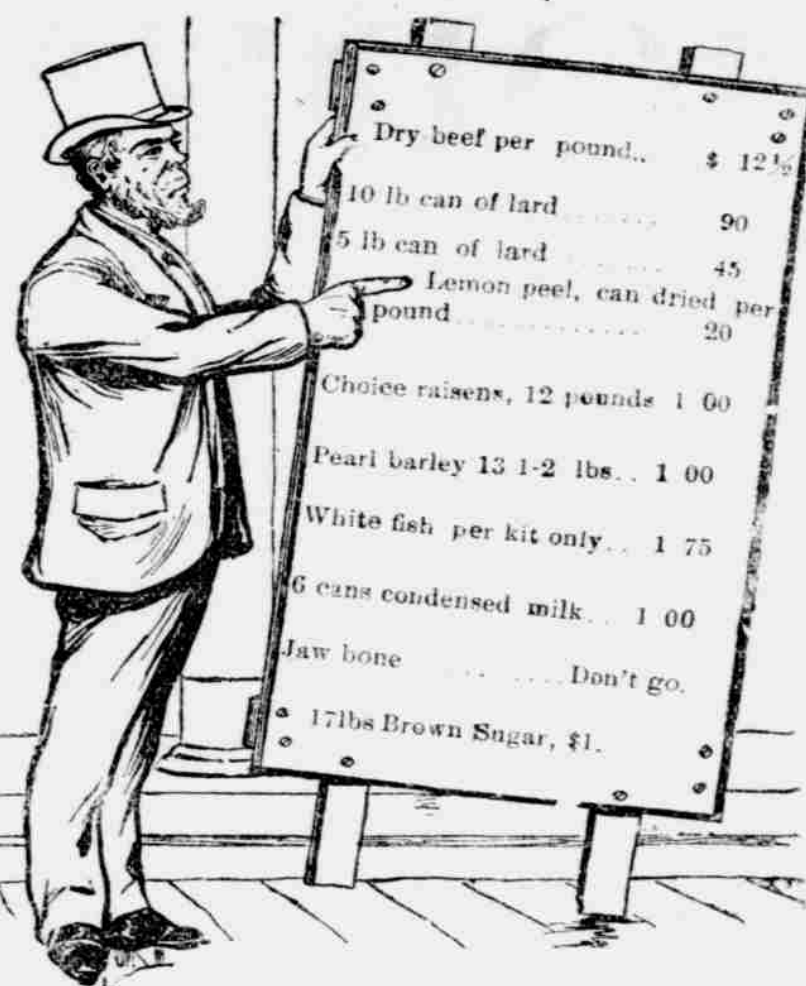 Dry beef per pound.. $ 12½
10 lb can of lard ........ 90
5 lb can of lard ....... 45
Lemon peel, can dried per
pound.............. 20
Choice raisens, 12 pounds 1 00
Pearl barley 13 1-2 lbs.. 1 00
White fish per kit only.. 1 75
6 cans condensed milk.. 1 00
Jaw bone ..... ....Don't go.
17lbs Brown Sugar, $1.